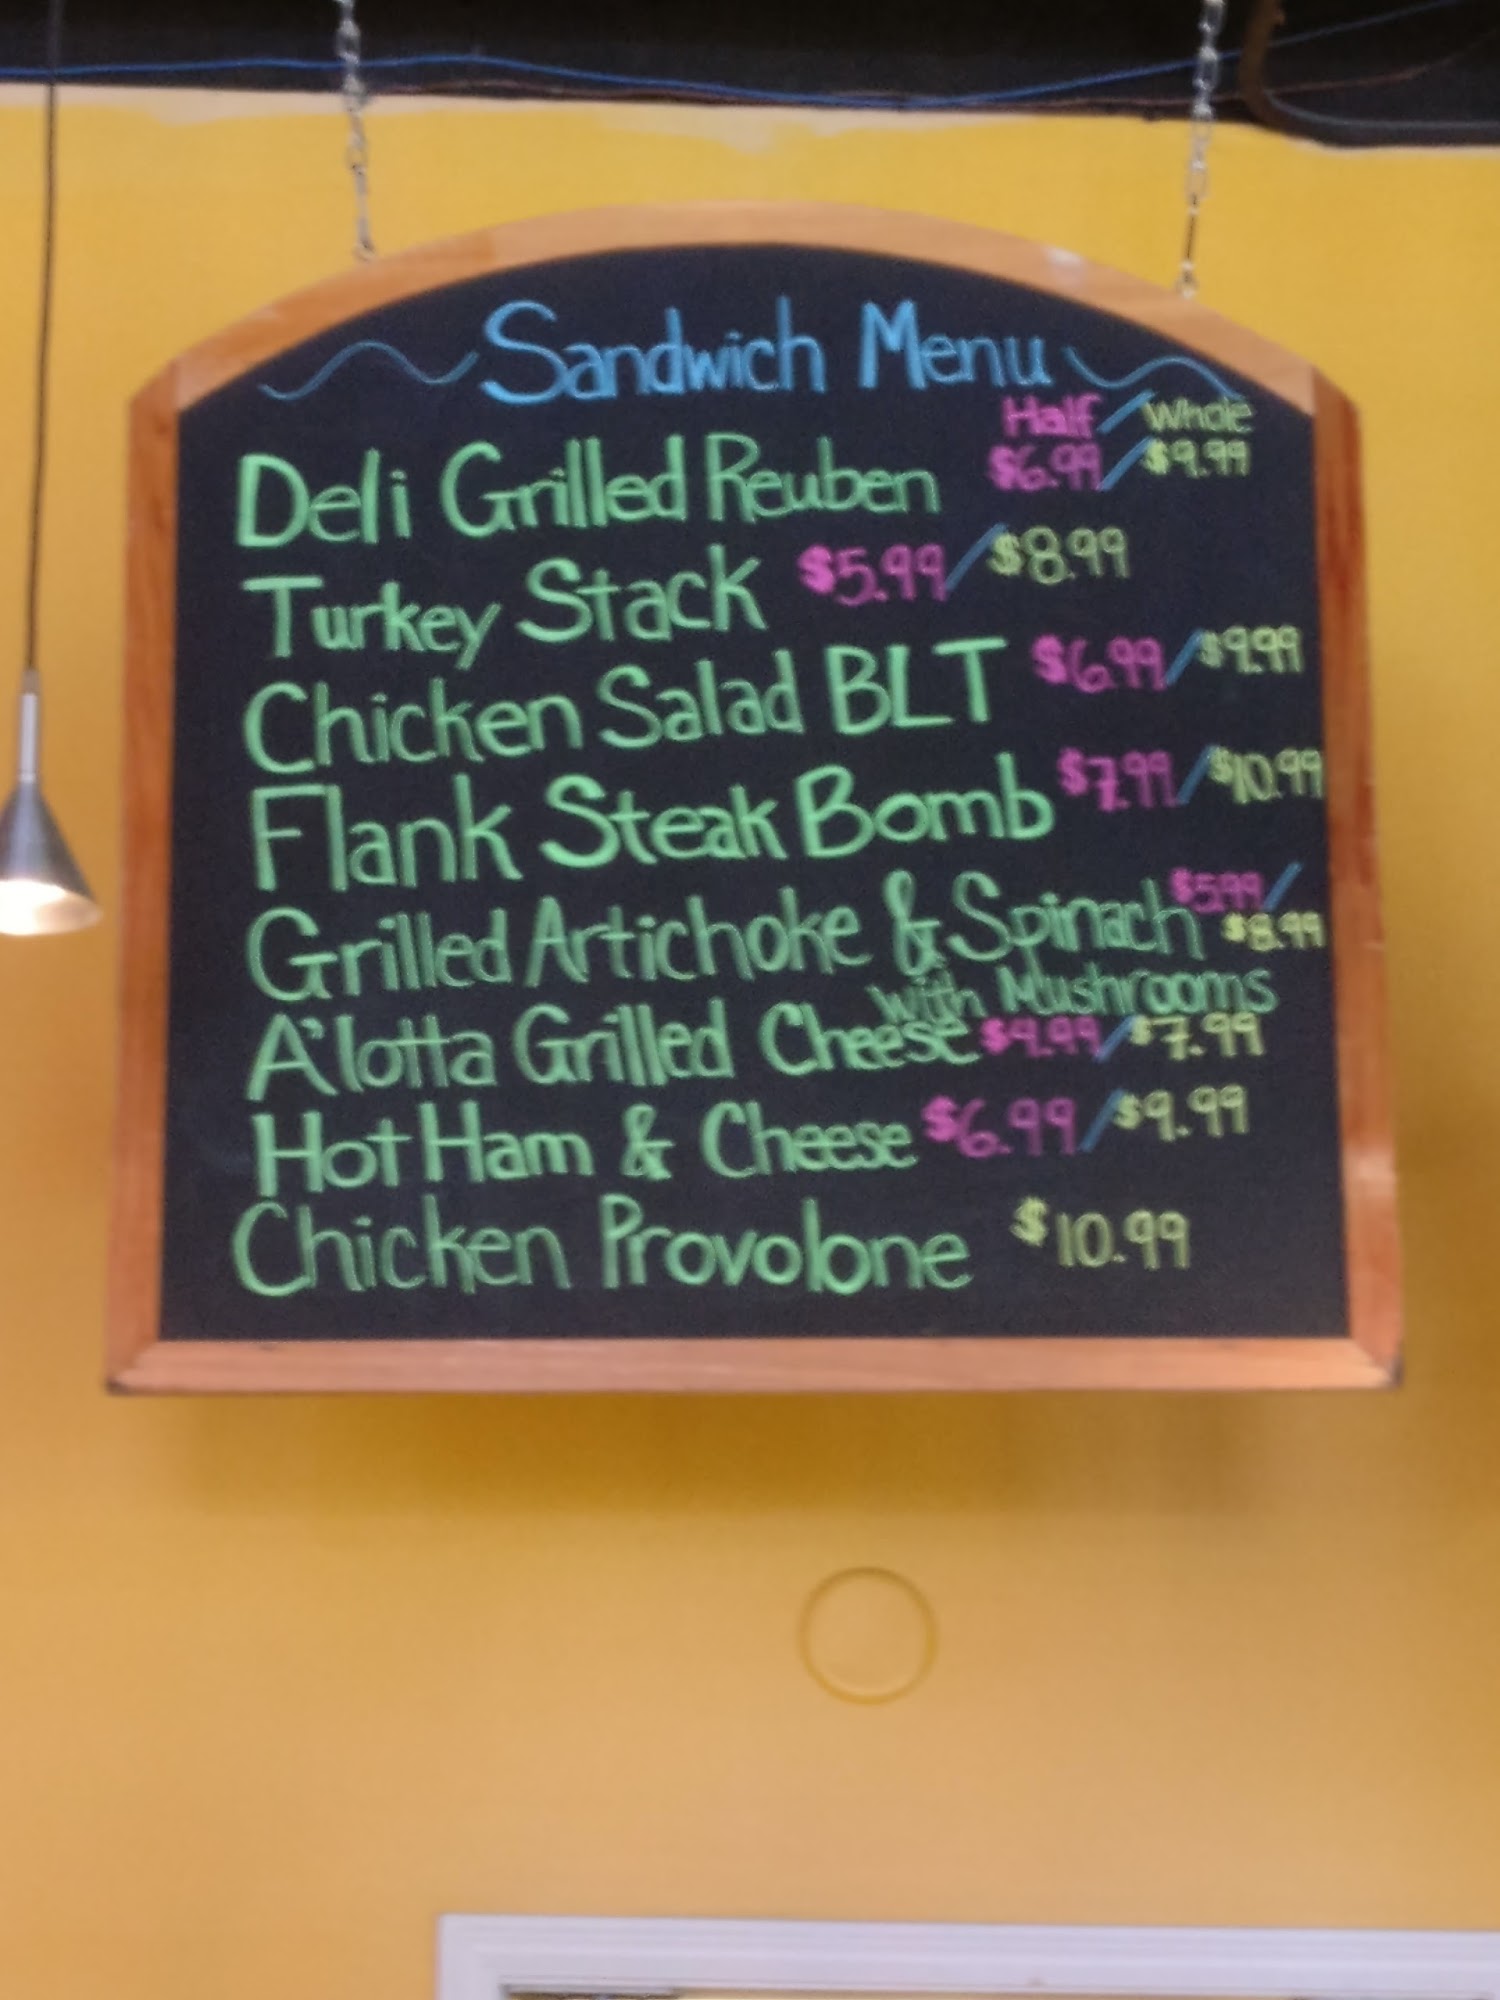 Sandwich Menu
Half / Whole
Deli Grilled Reuben $6.99 / $9.99
Turkey Stack $5.99 / $8.99
Chicken Salad BLT $6.99 / $9.99
Flank Steak Bomb $7.99 / $10.99
Grilled Artichoke & Spinach $5.99 /
$8.99
with Mushrooms
A'lotta Grilled Cheese $4.99 / $7.99
Hot Ham & Cheese $6.99 / $9.99
Chicken Provolone $10.99